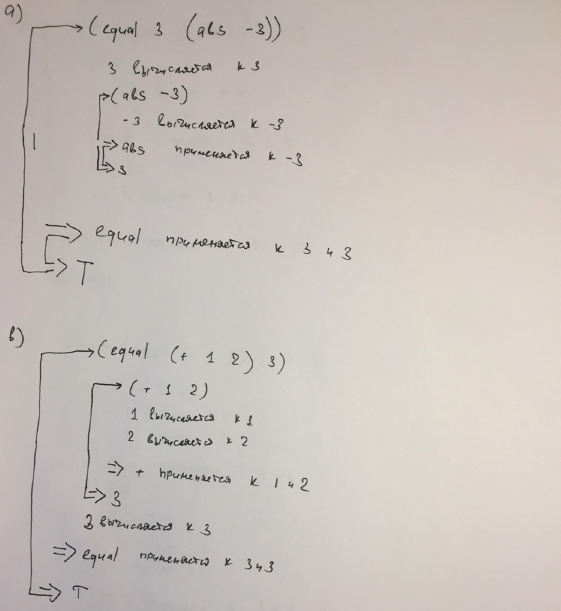 а)
(equal 3 (abs -3))
3 вычисляется к 3
(abs -3)
-3 вычисляется к -3
abs применяется к -3
3
equal применяется к 3 и 3
T
в)
(equal (+ 1 2) 3)
(+ 1 2)
1 вычисляется к 1
2 вычисляется к 2
+ применяется к 1 и 2
3
3 вычисляется к 3
equal применяется к 3 и 3
T